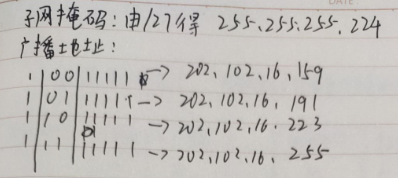 子网掩码：由/27得 255.255.255.224
广播地址：
1|00|11111 -> 202.102.16.159
1|01|11111 -> 202.102.16.191
1|10|11111 -> 202.102.16.223
1|11|11111 -> 202.102.16.255